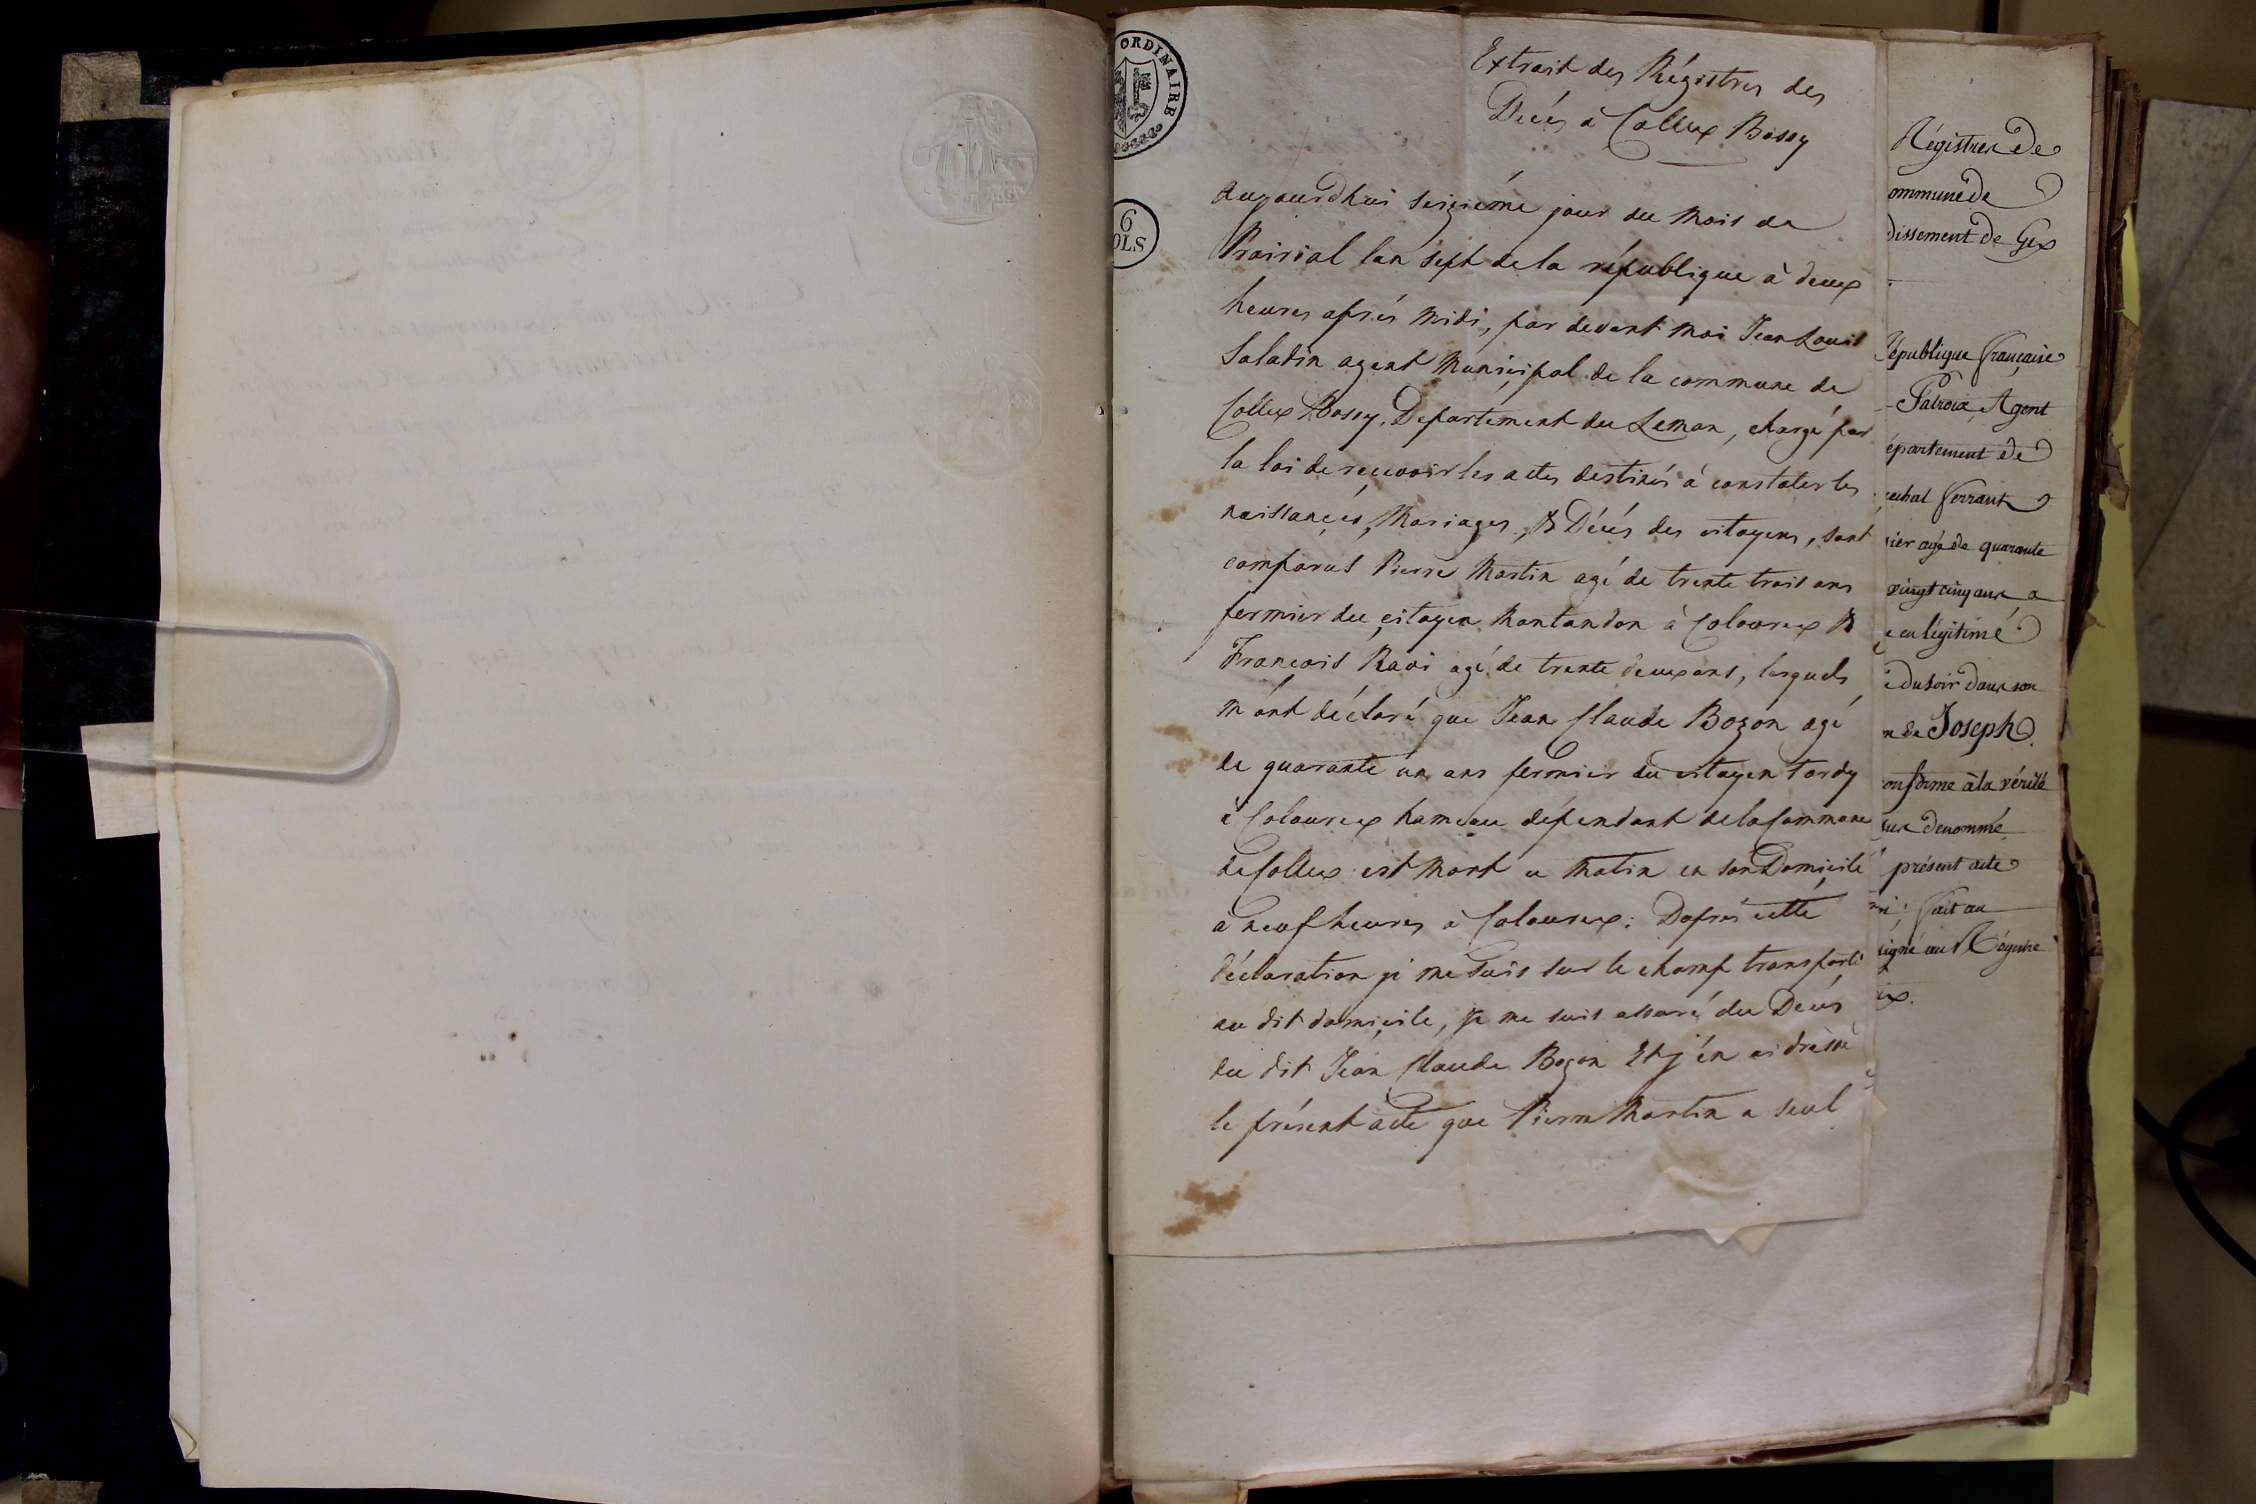 ORDINAIRE
6
OLS
Extrait des Régistres des
Décés à Collex Bossy
Aujourdhui seizieme jour du mois de
Prairial lan sept de la république à deux
heures aprés midi, par devant moi Jean Louis
Saladin agent municipal de la commune de
Collex Bossy, Departement du Leman, chargé par
la loi de recevoir les actes destinés à constater les
naissances, Mariages, & Décés des citoyens, sont
comparus Pierre Martin agé de trente trois ans
fermier du citoyen Montandon à Colovrex &
François Ravi agé de trente deux ans, lesquels
m'ont déclaré que Jean Claude Bozon agé
de quarante un ans fermier du citoyen tardy
à Colouvrex hameau dépendant de la Commune
de Collex est mort ce matin en son Domicile
à neuf heures à Colouvrex. Daprés cette
déclaration je me suis sur le champ transporté
au dit domicile, je me suis assuré du Decés
du dit Jean Claude Bozon Et j'en ai dréssé
le présent acte que Pierre Martin a seul
Régistres de
ommune de
dissement de Gex
République française
Patroix, Agent
épartement de
echal ferrant
ier agé de quarante
vingt cinq ans a
e en légitimé
e du soir dans son
n de Joseph
onforme à la vérité
denommé
présent acte
fait au
igné au Régistre
ix.